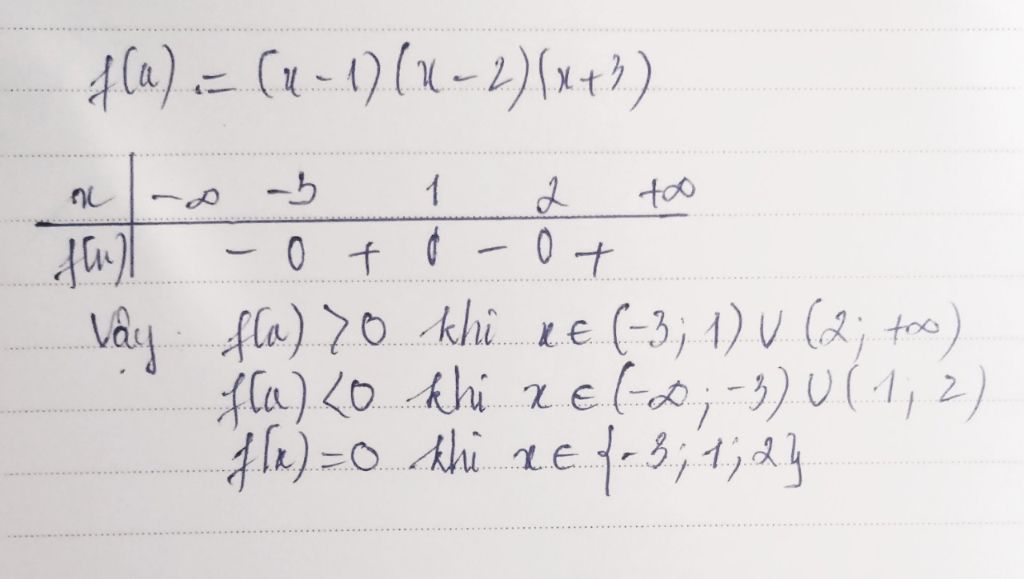 f(x) = (x - 1)(x - 2)(x + 3)
x | -∞ -3 1 2 +∞
f(x) | - 0 + 0 - 0 +
Vậy f(x) > 0 khi x ∈ (-3; 1) ∪ (2; +∞)
f(x) < 0 khi x ∈ (-∞; -3) ∪ (1; 2)
f(x) = 0 khi x ∈ {-3; 1; 2}